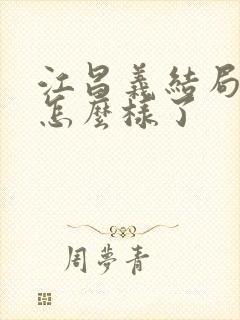 江昌義結局
怎麼樣了
周夢青